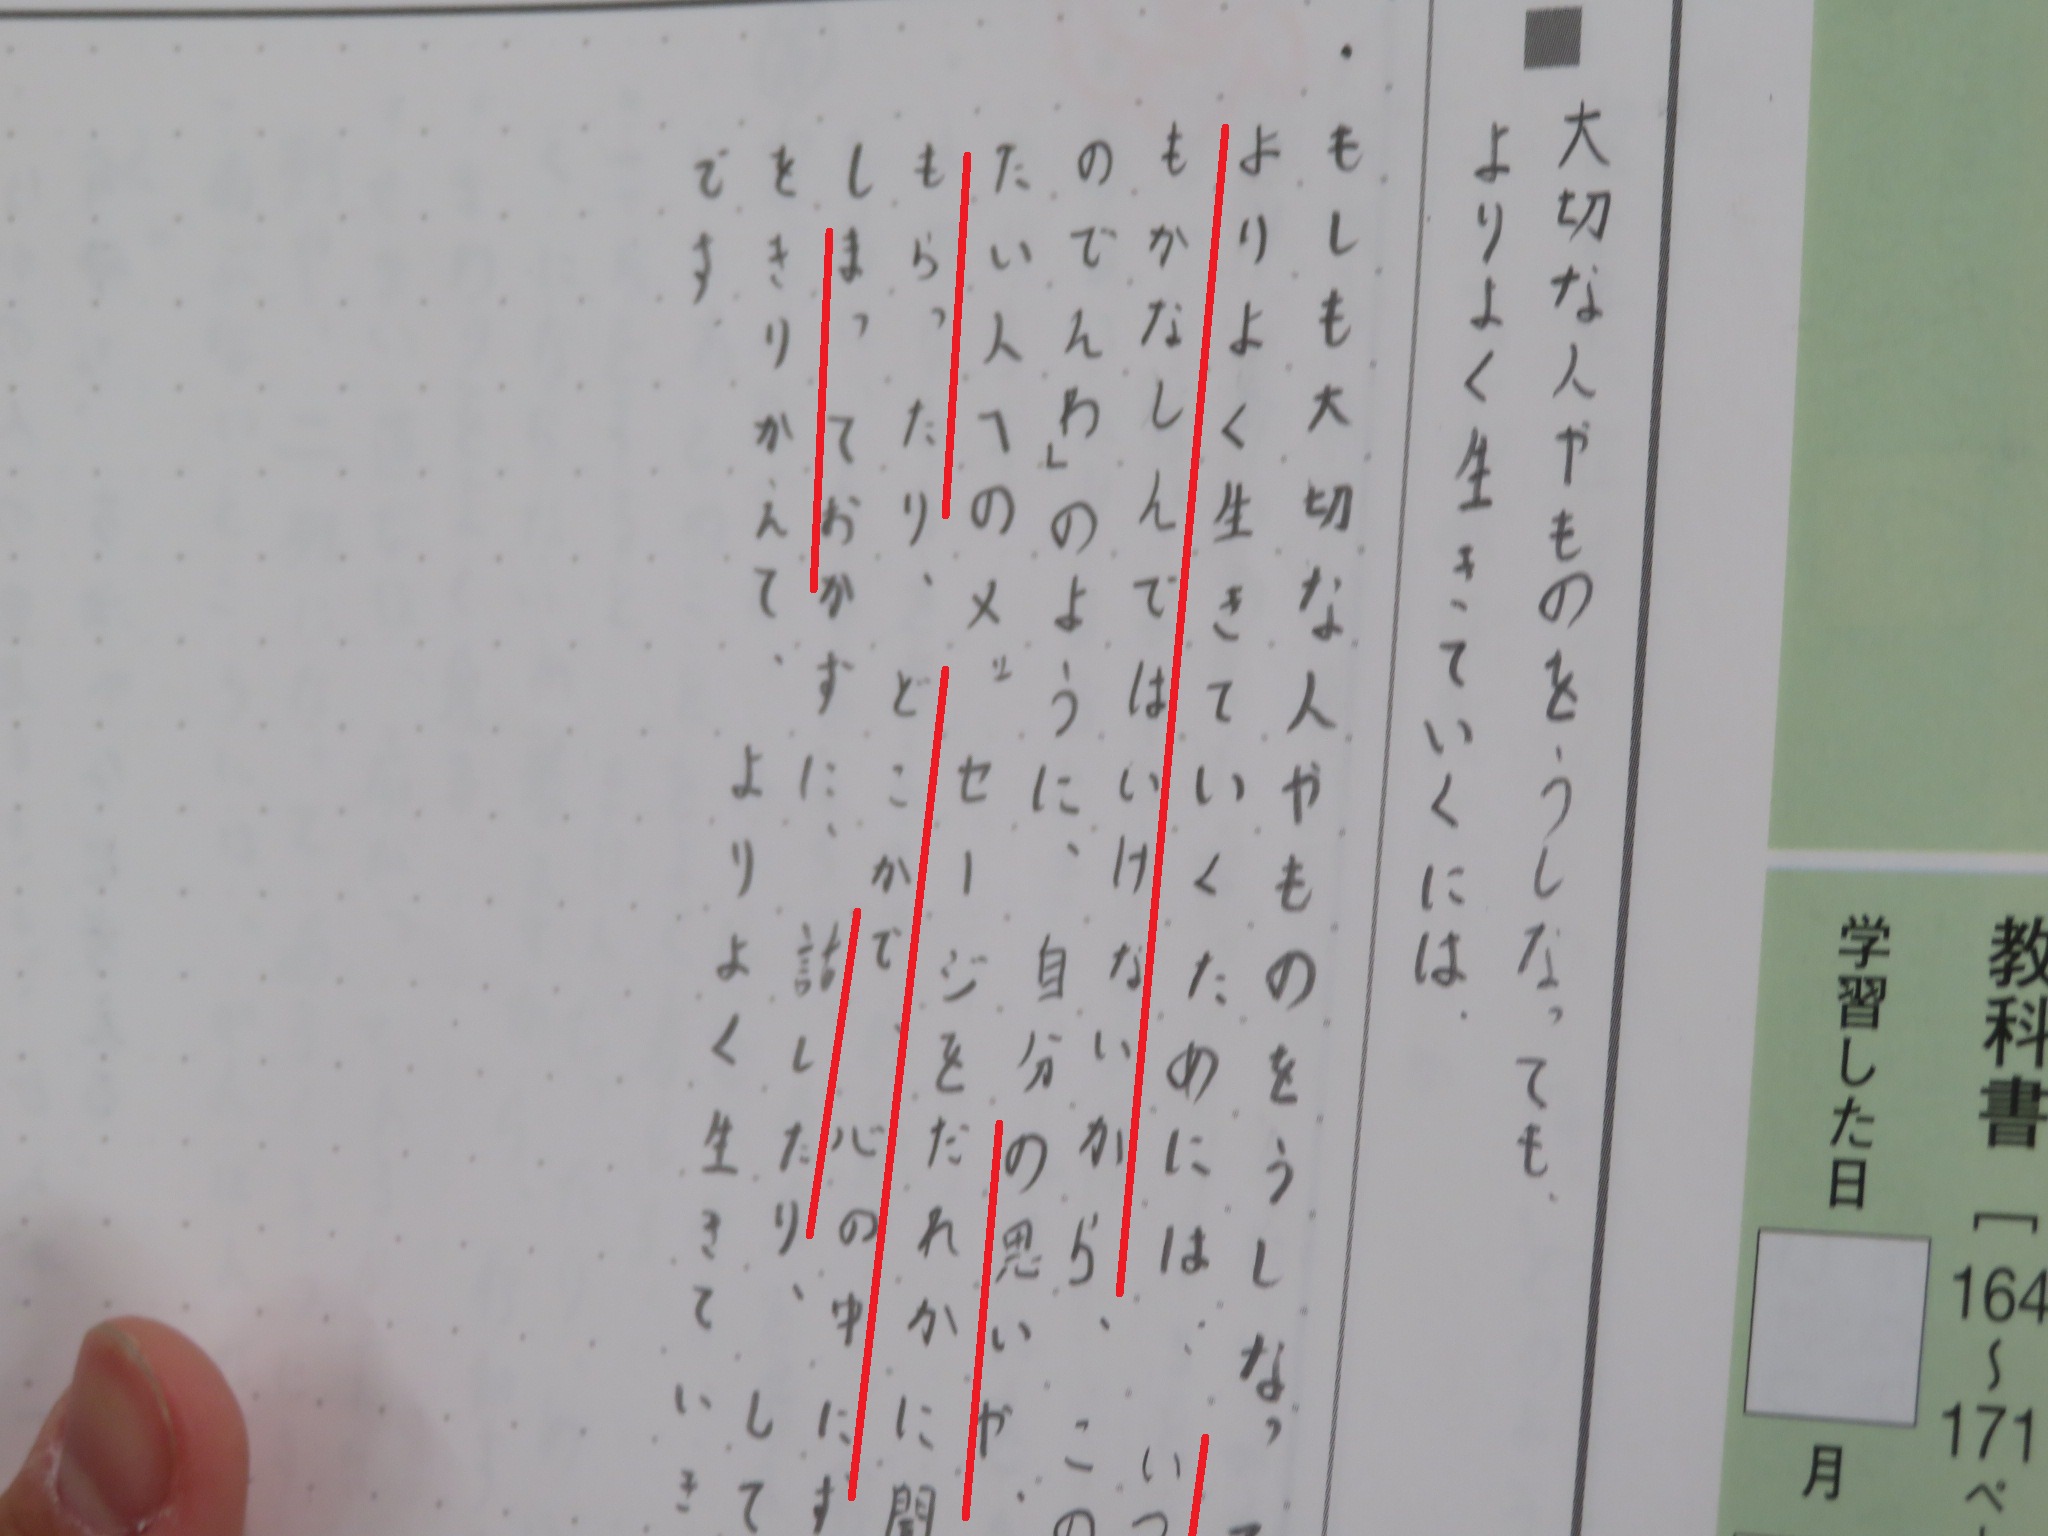 教科書 [164〜171ペ
学習した日 月
■大切な人やものをうしなっても、
よりよく生きていくには.
・もしも大切な人やものをうしなって
よりよく生きていくためには…いつ
もかなしんではいけないから、この
のでんわ」のように、自分の思いや、
たい人へのメッセージをだれかに聞
もらったり、どこかで、心の中にす
しまっておかずに、話したり、して
をきりかえて、よりよく生きていき
です.